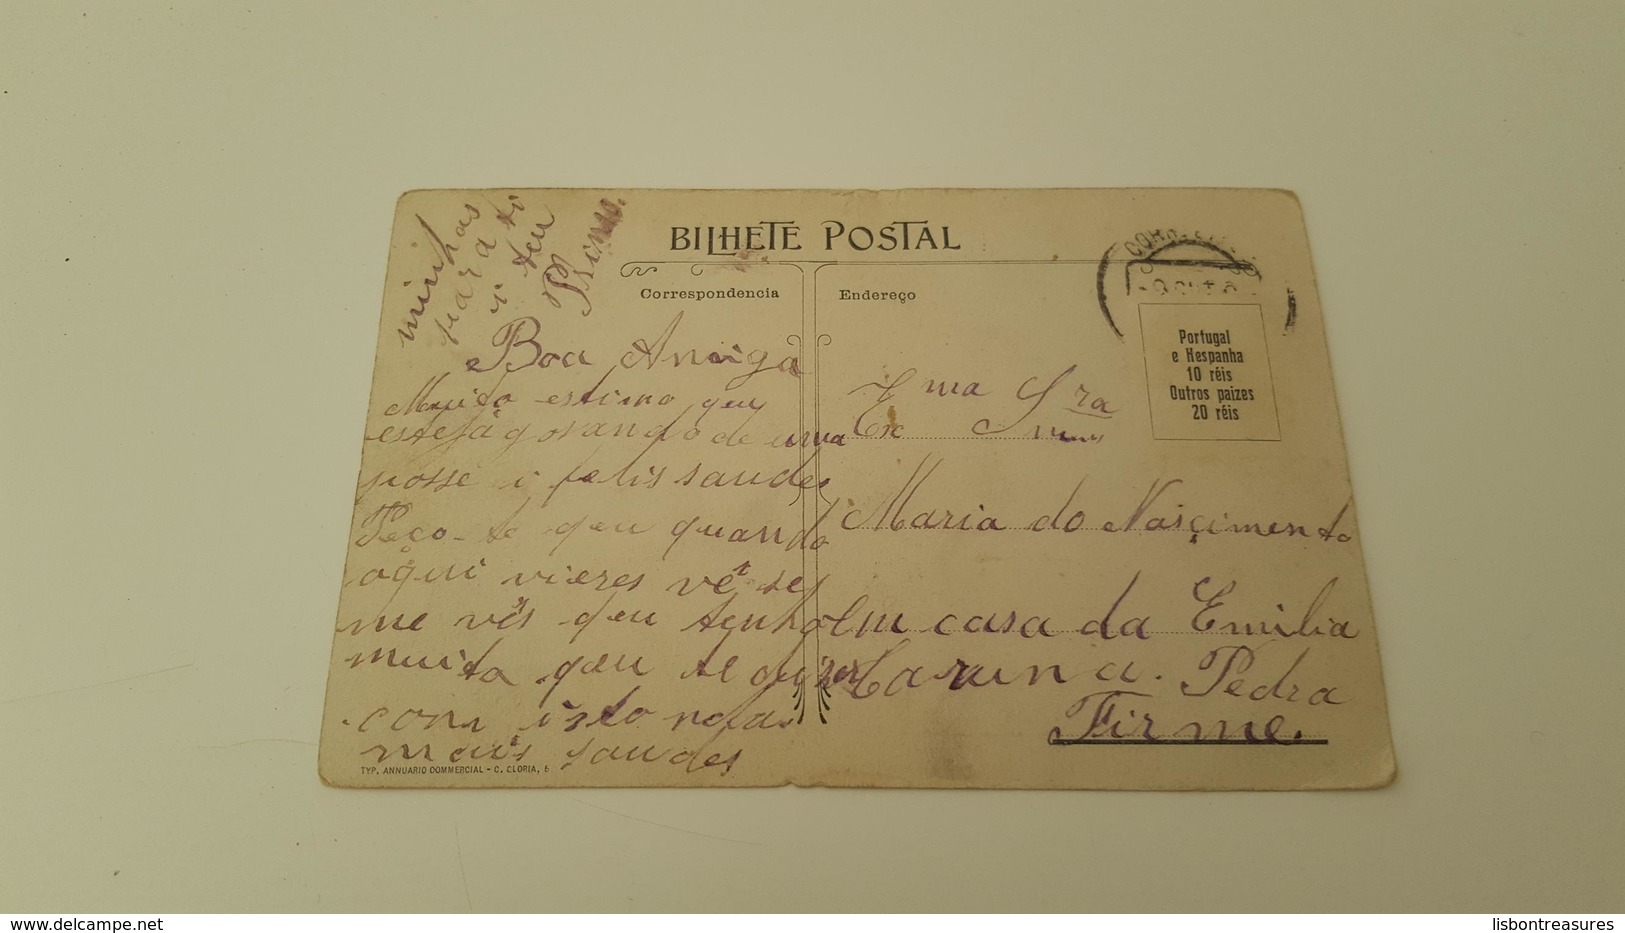 BILHETE POSTAL
Correspondencia
Endereço
Portugal
e Hespanha
10 réis
Outros paizes
20 réis
Boa Amiga
Muito estimo que
esteja gosando de uma
posse i felis saudes
Peço-te qeu quando
aqui vieres vê se
me vês qeu tenho
muito qeu te dizer
com isto nada
mais saudes
minhas
para ti
i teu
Primo.
Exma Sra
Maria do Nasçimento
em casa da Emilia
Caruna. Pedra
Firme.
TYP. ANNUARIO COMMERCIAL - C. GLORIA, 5
delcampe.net
lisbontreasures